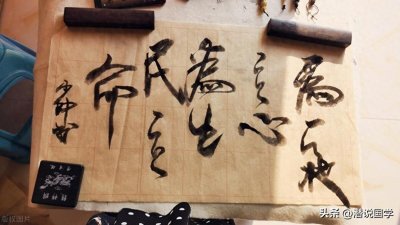 為天地
立心
為生
民立
命
头条 @潜说国学
版权图片